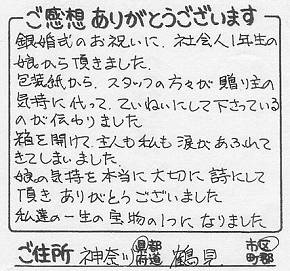 ご感想ありがとうございます
銀婚式のお祝いに、社会人1年生の
娘から頂きました。
包装紙から、スタッフの方々が贈り主の
気持に代って、ていねいにして下さっている
のが伝わりました
箱を開けて主人も私も涙があふれて
きてしまいました。
娘の気持を本当に大切に詩にして
頂きありがとうございました
私達の一生の宝物の1つになりました
ご住所 神奈川 都道府県 鶴見 市区町郡